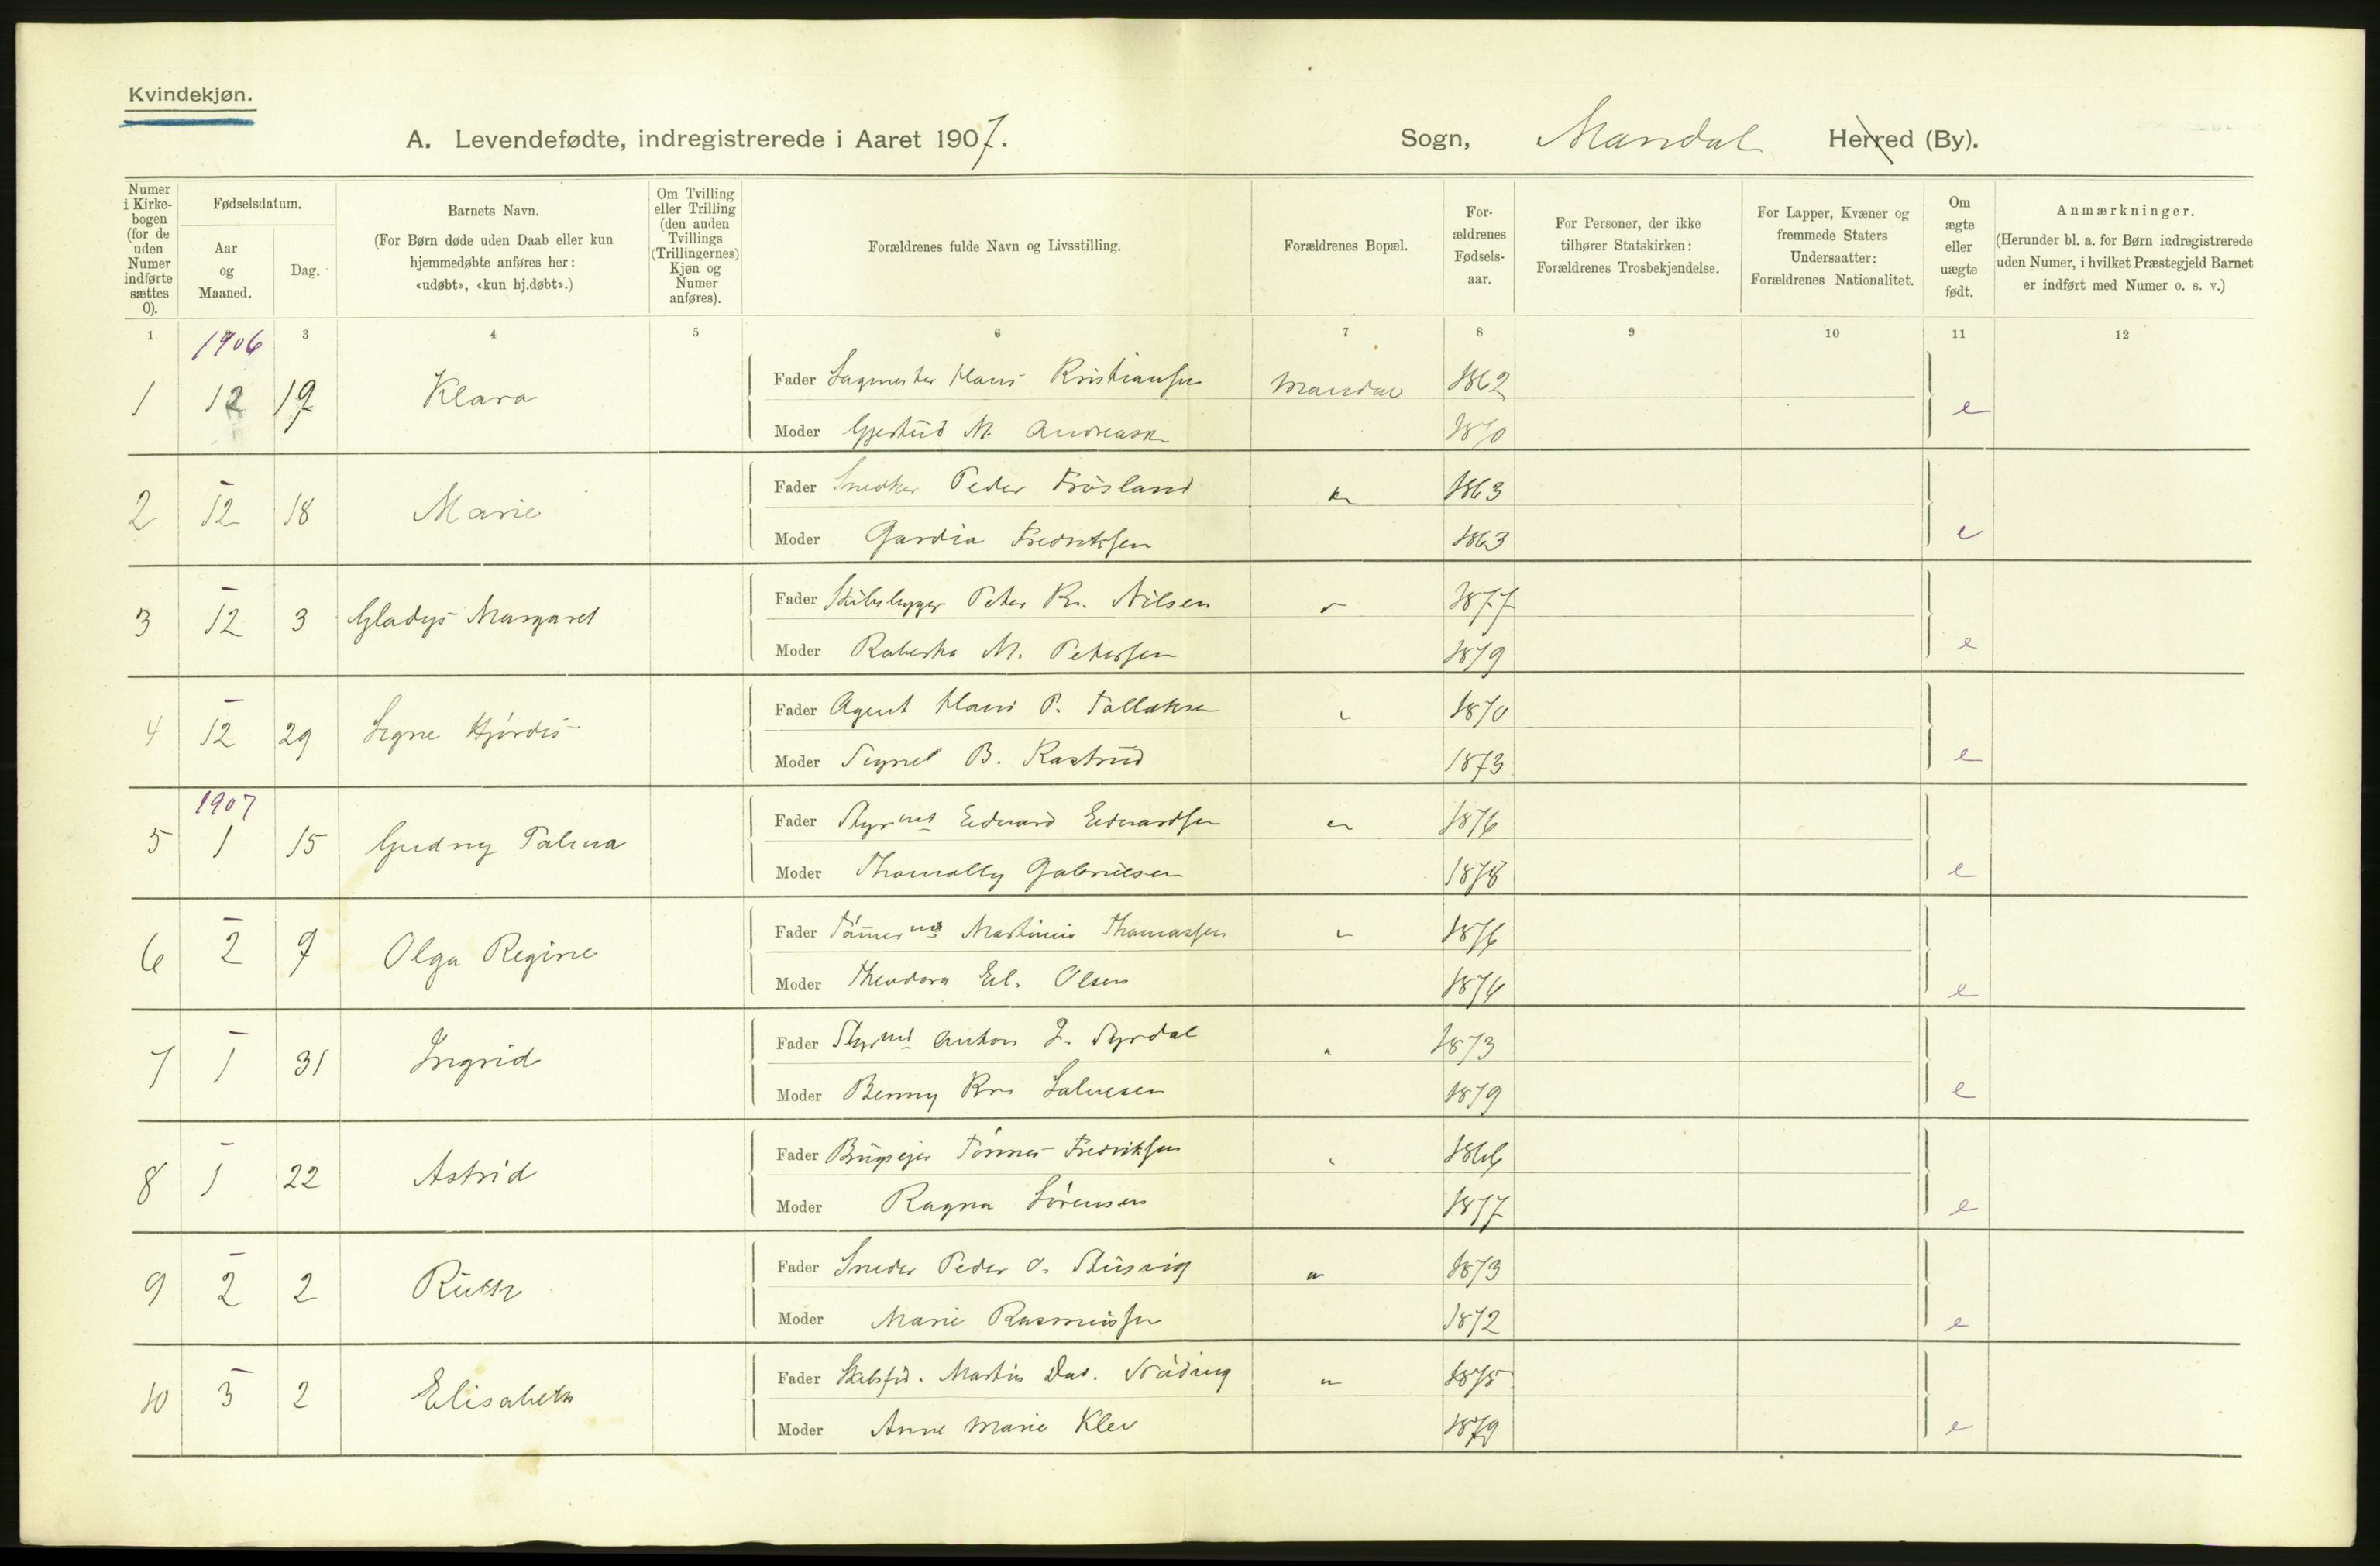 Kvindekjøn.
A. Levendefødte, indregistrerede i Aaret 1907. Sogn, Mandal Herred (By).
Numer i Kirke-bogen (for de uden Numer indførte sættes 0).
Fødselsdatum.
Aar og Maaned.
Dag.
Barnets Navn.
(For Børn døde uden Daab eller kun hjemmedøbte anføres her: «udøbt», «kun hj.døbt».)
Om Tvilling eller Trilling (den anden Tvillings (Trillingernes) Kjøn og Numer anføres).
Forældrenes fulde Navn og Livsstilling.
Forældrenes Bopæl.
For-ældrenes Fødsels-aar.
For Personer, der ikke tilhører Statskirken: Forældrenes Trosbekjendelse.
For Lapper, Kvæner og fremmede Staters Undersaatter: Forældrenes Nationalitet.
Om ægte eller uægte født.
Anmærkninger.
(Herunder bl. a. for Børn indregistrerede uden Numer, i hvilket Præstegjeld Barnet er indført med Numer o. s. v.)
1 3 4 5 6 7 8 9 10 11 12
1906
1 12 19 Klara Fader Sagmester Hans Kristiansen Mandal 1862 e
Moder Gjertrud M. Andreasen 1870
2 12 18 Marie Fader Snedker Peder Frøsland 1863 e
Moder Gardia Fredriksen 1863
3 12 3 Gladys Margaret Fader Skibsbygger Peter Kr. Nilsen 1877 e
Moder Roberta M. Petersen 1879
4 12 29 Signe Hjørdis Fader Agent Hans P. Tallaksen 1870 e
Moder Signel B. Kastrud 1873
1907
5 1 15 Gudny Palma Fader Styrmd Edvard Edvardsen 1876 e
Moder Thomally Gabrielsen 1878
6 2 7 Olga Regine Fader Tømmermd Martinius Thomassen 1876 e
Moder Theodora El. Olsen 1876
7 1 31 Ingrid Fader Styrmd Anton J. Syrdal 1873 e
Moder Benny Kr. Salvesen 1879
8 1 22 Astrid Fader Brugsejer Tønnes Fredriksen 1866 e
Moder Ragna Sørensen 1877
9 2 2 Ruth Fader Peder O. 1873 e
Moder Marie Rasmussen 1872
10 3 2 Elisabeth Fader Skibsfd. Martin Dav. 1875 e
Moder Anne Marie Klev 1879